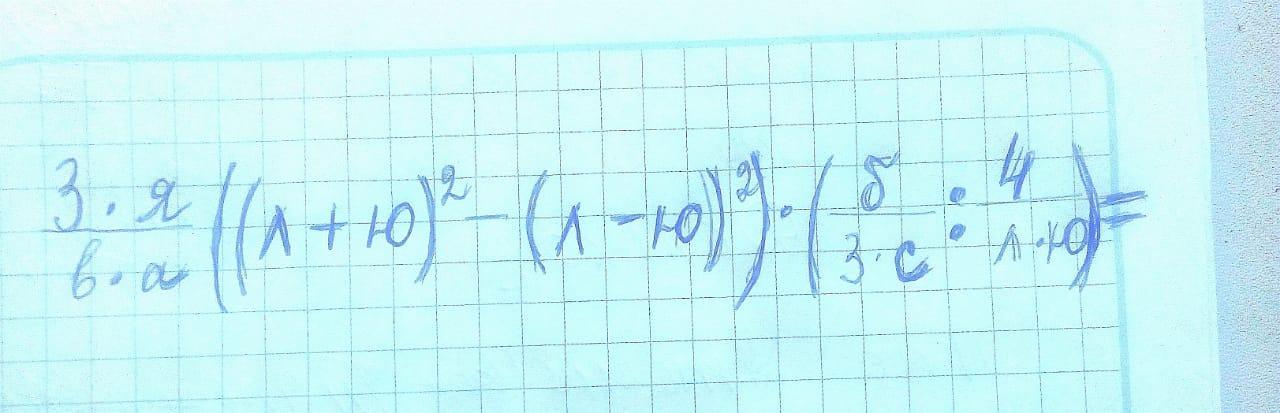 \frac{3 \cdot я}{в \cdot а} ((л + ю)^2 - (л - ю)^2) \cdot (\frac{б}{3 \cdot с} : \frac{4}{л \cdot ю}) =